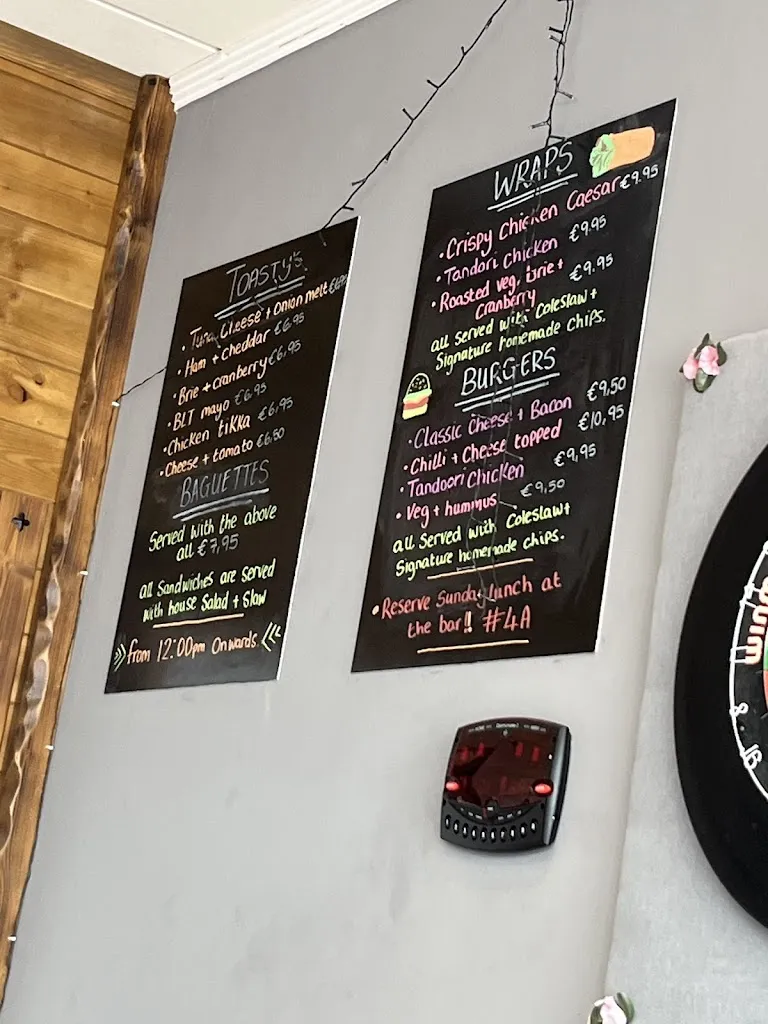 TOASTY'S
• Tuna, Cheese + Onion melt €6.95
• Ham + Cheddar €6.95
• Brie + cranberry €6,95
• BLT mayo €6.95
• Chicken tikka €6,95
• Cheese + tomato €6,50
BAGUETTES
Served with the above
all €7,95
all Sandwiches are served
with house Salad + Slaw
from 12:00pm Onwards
WRAPS
• Crispy Chicken Caesar €9.95
• Tandori Chicken €9.95
• Roasted veg, brie + €9.95
Cranberry
all Served with Coleslaw +
Signature homemade chips.
BURGERS
• Classic Cheese + Bacon €9,50
• Chilli + Cheese topped €10,95
• Tandoori Chicken €9,95
• Veg + hummus €9,50
all Served with Coleslaw +
Signature homemade chips.
• Reserve Sunday Lunch at
the bar!! #4A